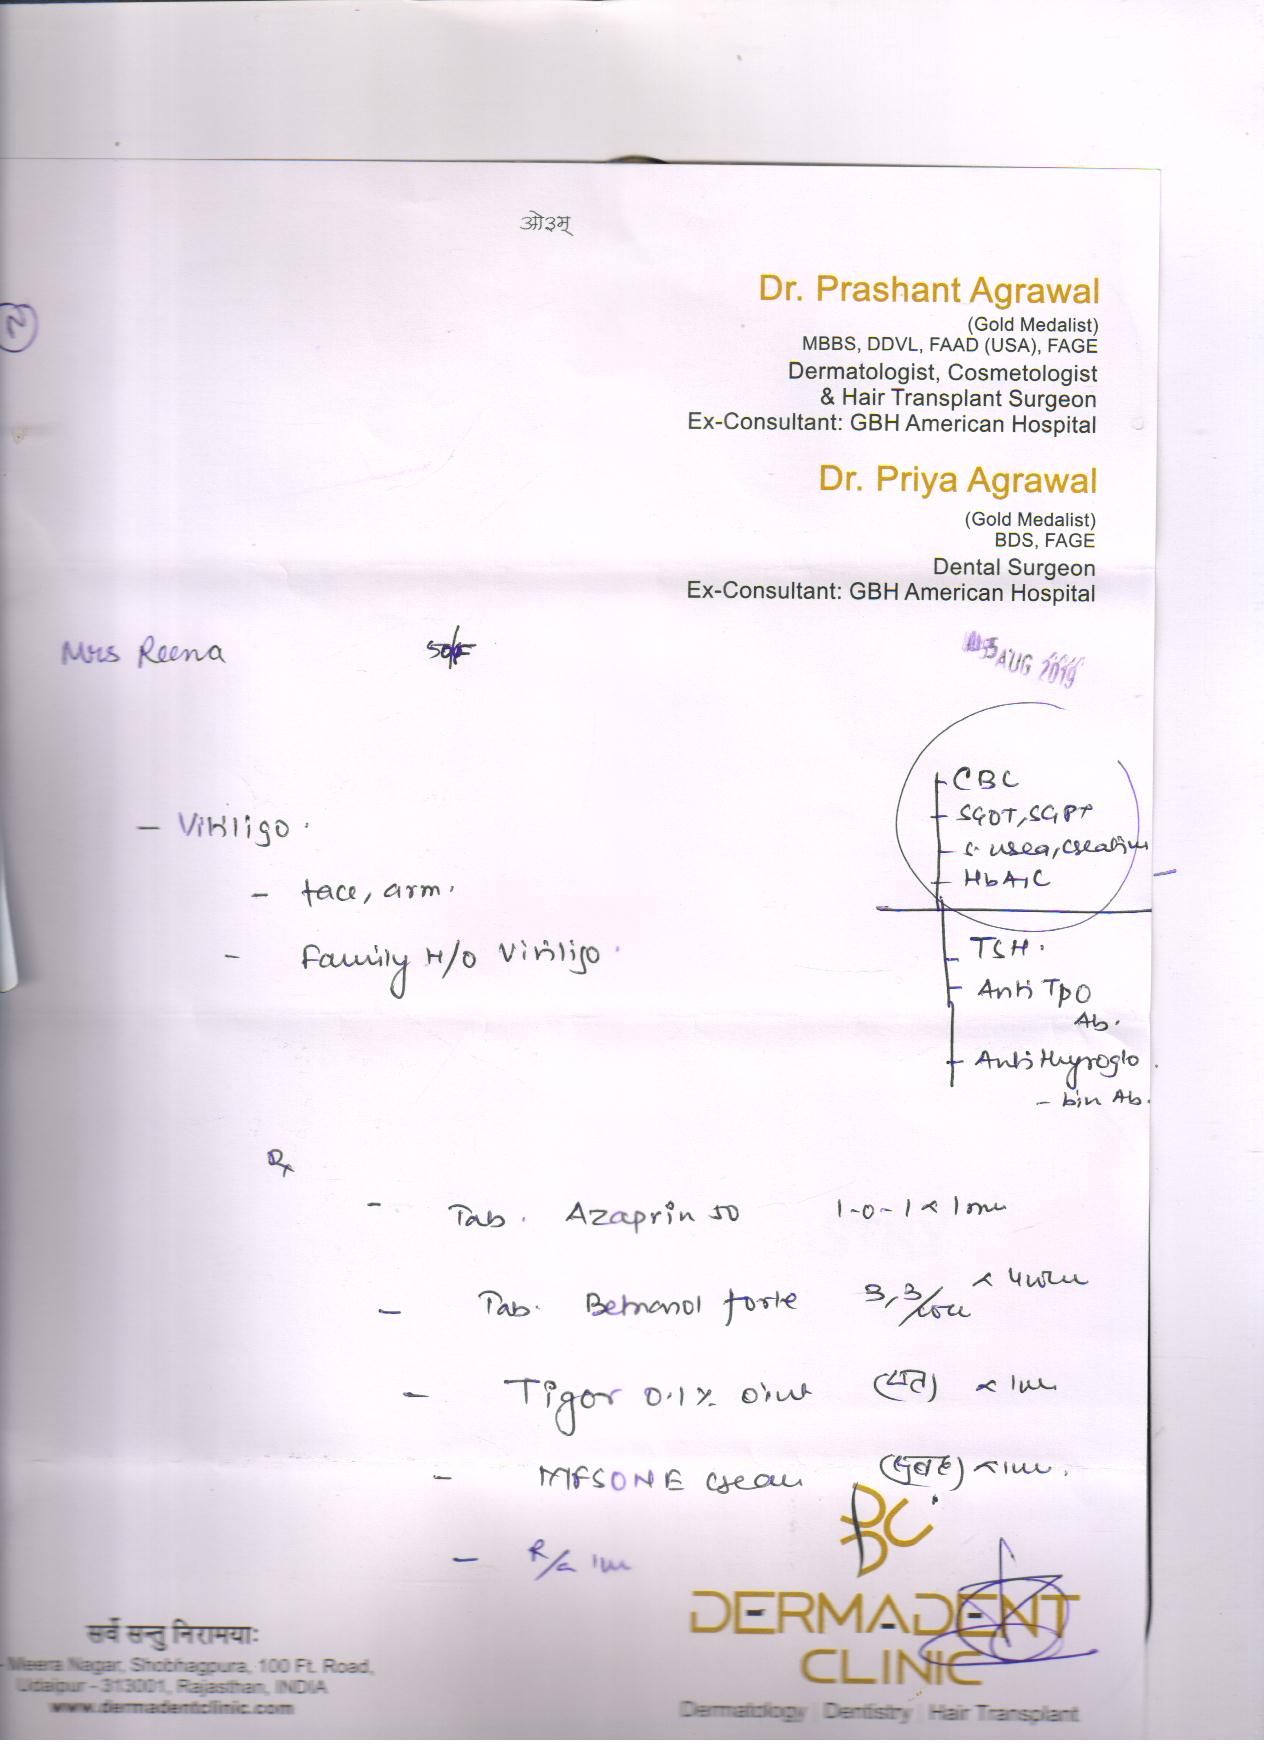 ओ३म्
Dr. Prashant Agrawal
(Gold Medalist)
MBBS, DDVL, FAAD (USA), FAGE
Dermatologist, Cosmetologist
& Hair Transplant Surgeon
Ex-Consultant: GBH American Hospital
2
Dr. Priya Agrawal
(Gold Medalist)
BDS, FAGE
Dental Surgeon
Ex-Consultant: GBH American Hospital
Mrs Reena
AUG 2019
- Vitiligo.
- face, arm.
- Family H/O Vitiligo.
- CBC
- SGOT, SGPT
- S. urea, creatinine
- HbA1C
- TSH.
- Anti TPO
Ab.
- Anti thyroglo
- bin Ab.
Rx
- Tab. Azaprin 50 1-0-1 x 1m
- Tab. Betnanol forte 3, 3/ x 4
- Tigor 0.1% oint (रात) x 1m
- MFSONE cream (सुबह) x 1m.
- R/a 1m
DC
DERMADENT
CLINIC
Dermatology | Dentistry | Hair Transplant
सर्वे सन्तु निरामयाः
Meera Nagar, Shobhagpura, 100 Ft. Road,
Udaipur - 313001, Rajasthan, INDIA
www.dermadentclinic.com